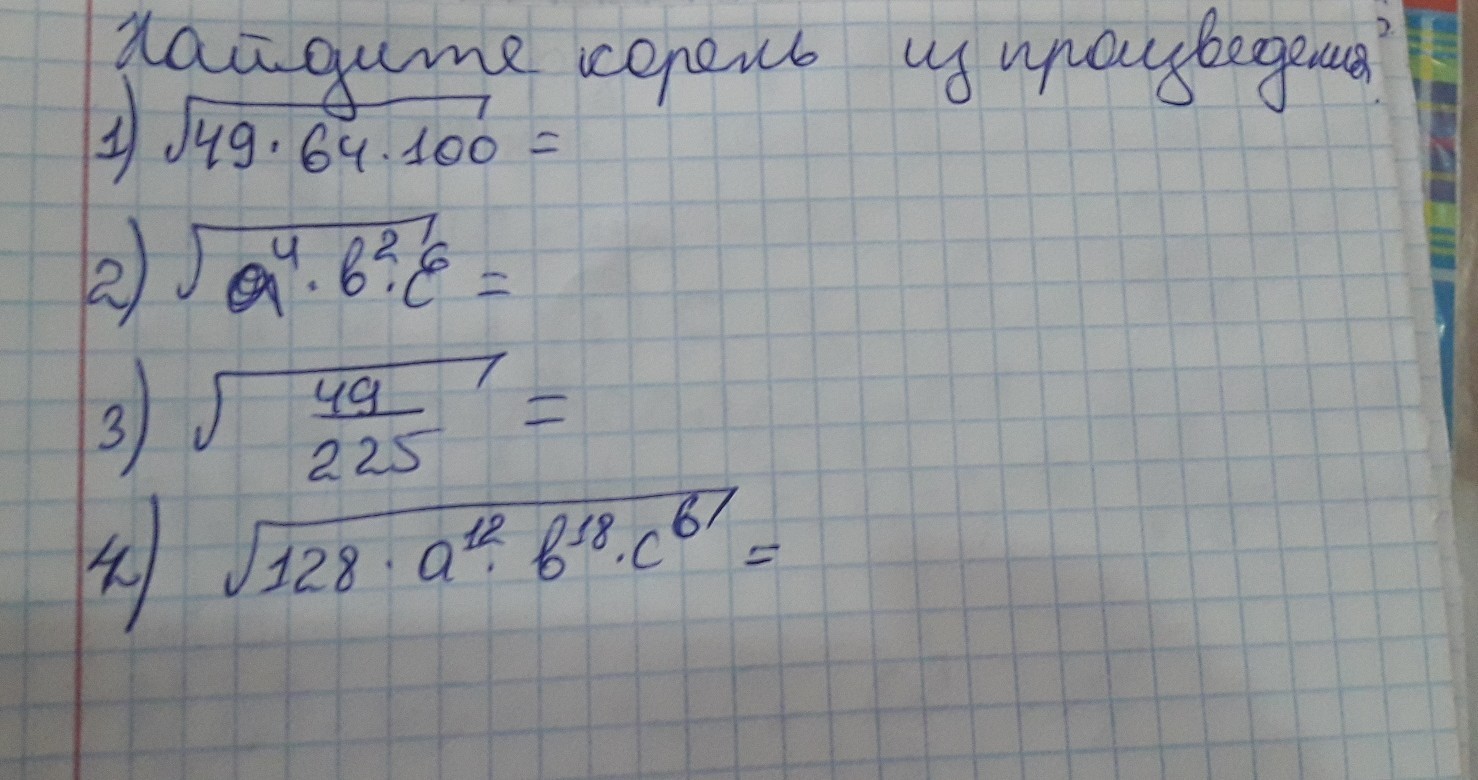 Найдите корень из произведения.
1) √49 · 64 · 100 =
2) √a⁴ · b² · c⁶ =
3) √49/225 =
4) √128 · a¹² · b¹⁸ · c⁶ =